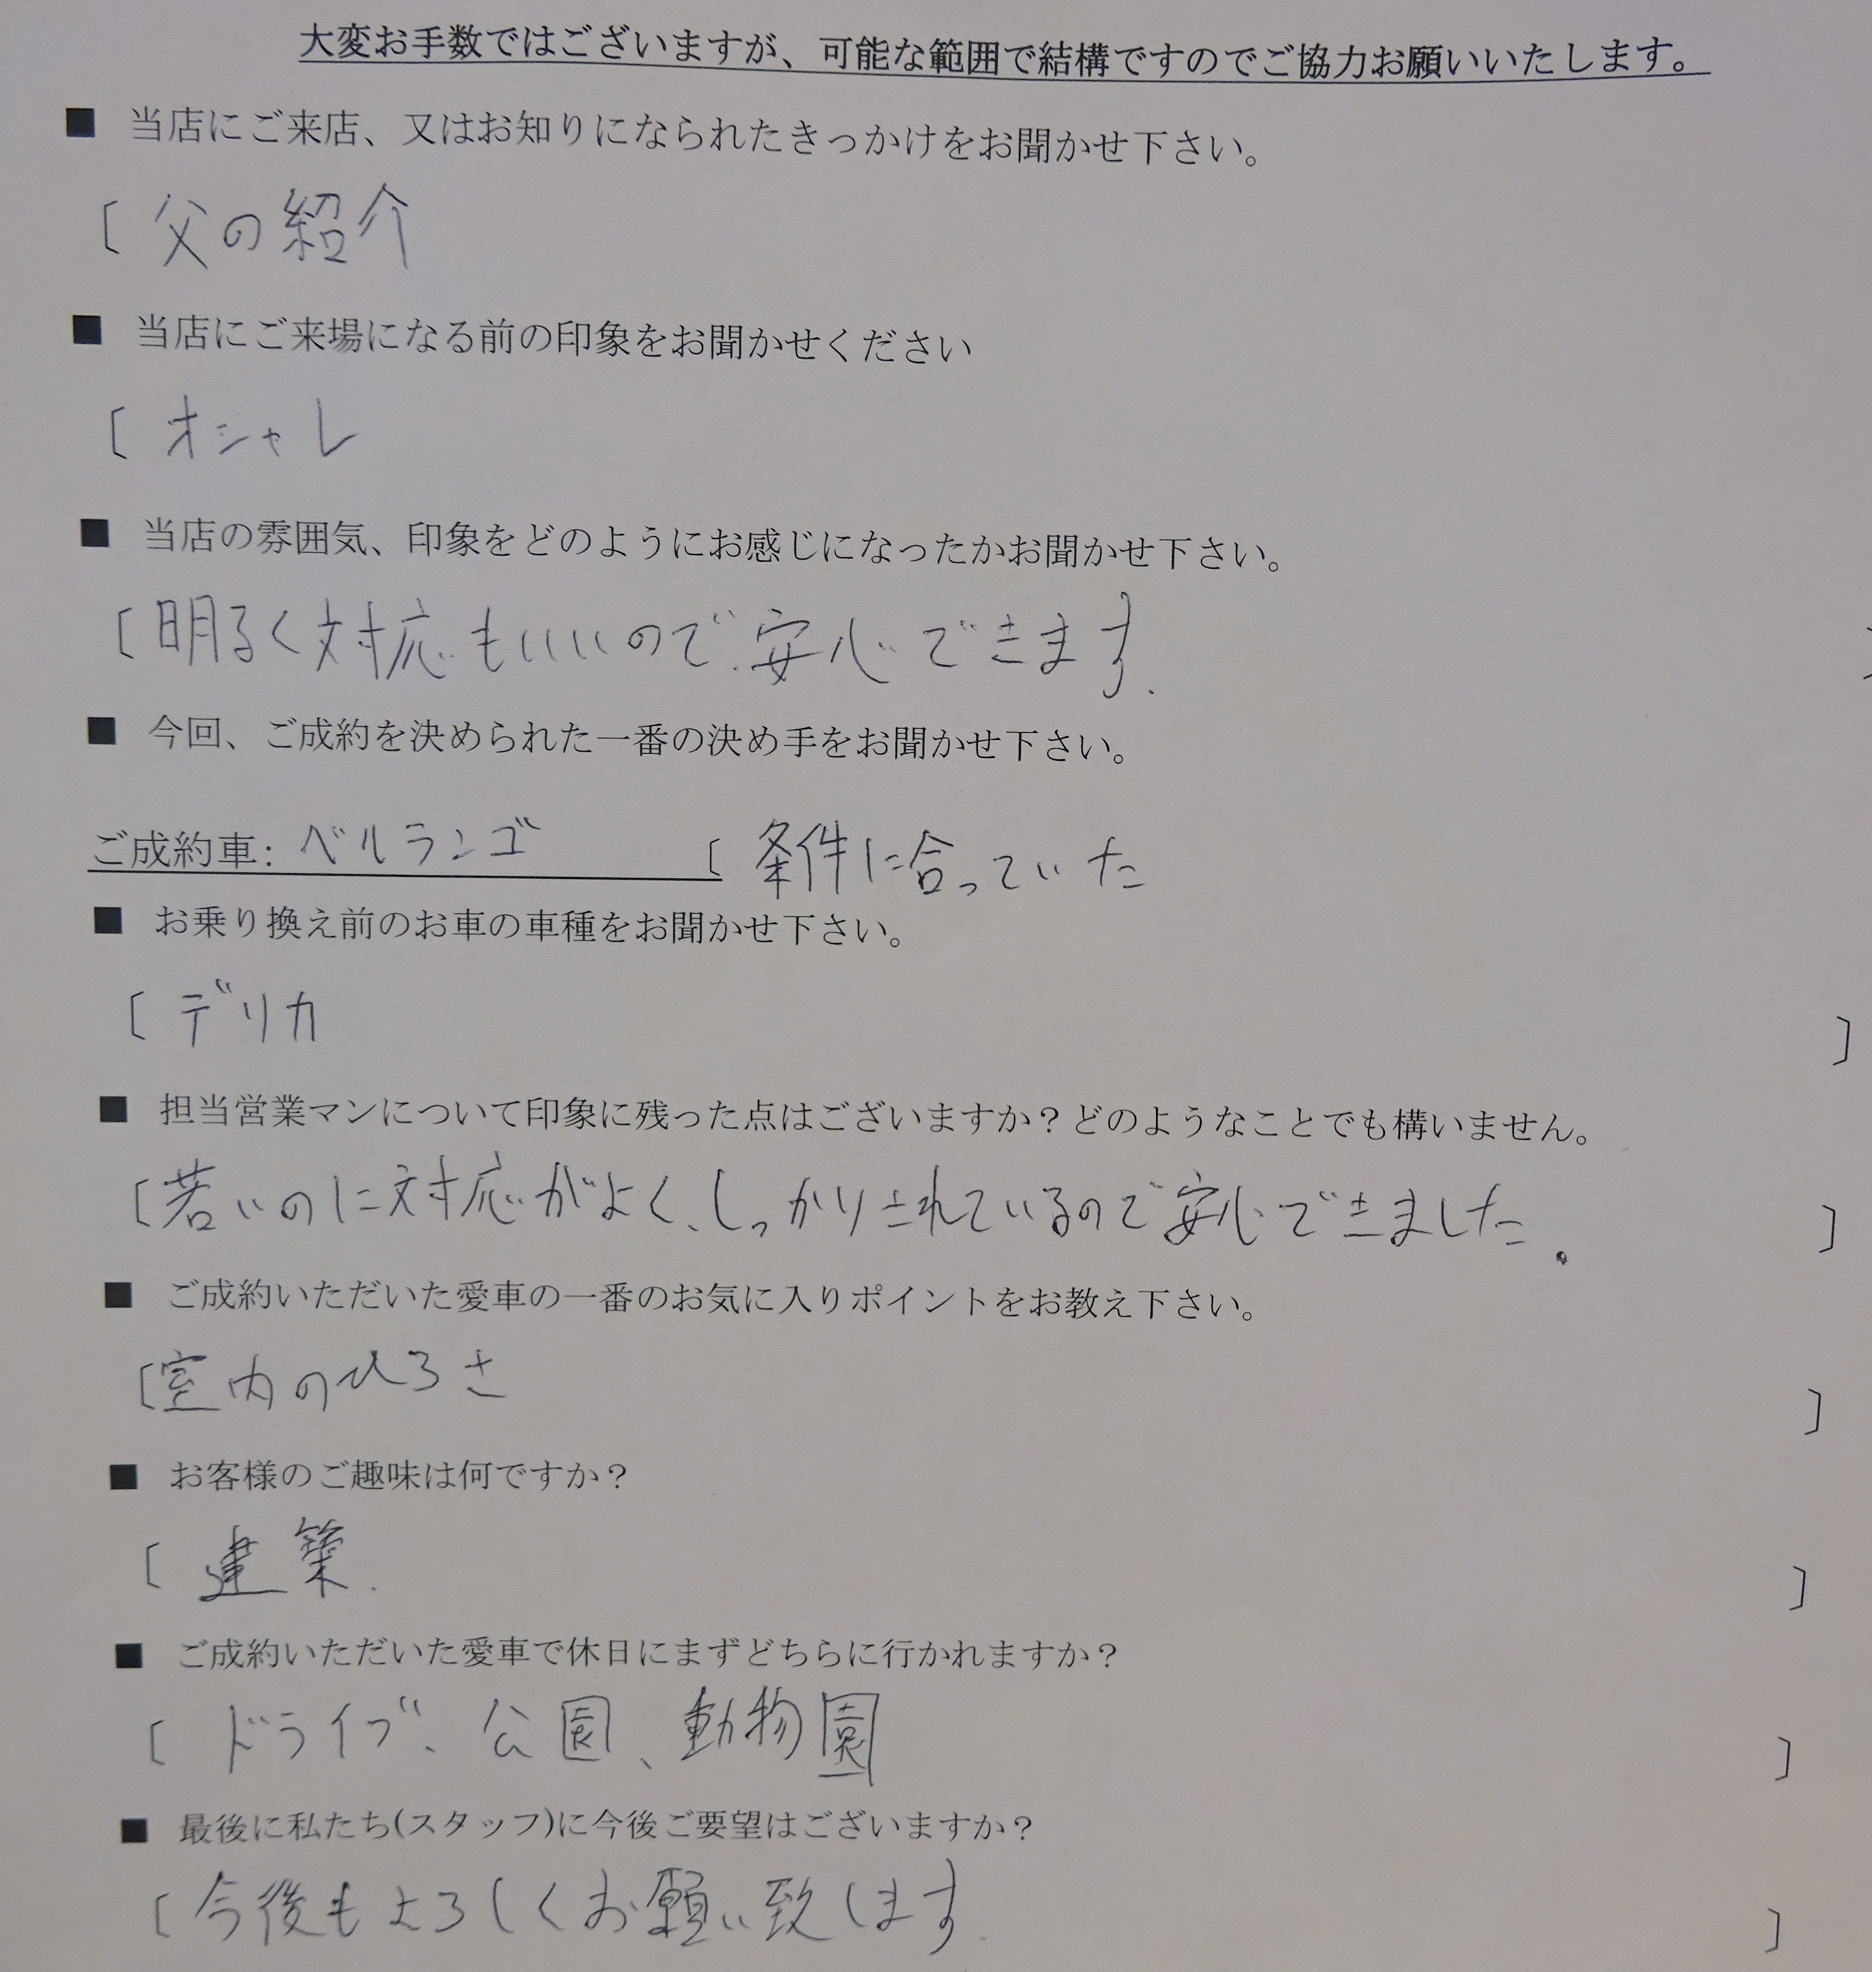 大変お手数ではございますが、可能な範囲で結構ですのでご協力お願いいたします。
■ 当店にご来店、又はお知りになられたきっかけをお聞かせ下さい。
〔 父の紹介
■ 当店にご来場になる前の印象をお聞かせください
〔 オシャレ
■ 当店の雰囲気、印象をどのようにお感じになったかお聞かせ下さい。
〔 明るく対応もいいので、安心できます.
■ 今回、ご成約を決められた一番の決め手をお聞かせ下さい。
ご成約車: ベルランゴ 〔 条件に合っていた
■ お乗り換え前のお車の車種をお聞かせ下さい。
〔 デリカ 〕
■ 担当営業マンについて印象に残った点はございますか？どのようなことでも構いません。
〔 若いのに対応がよく、しっかりされているので安心できました。 〕
■ ご成約いただいた愛車の一番のお気に入りポイントをお教え下さい。
〔 室内のひろさ 〕
■ お客様のご趣味は何ですか？
〔 建築. 〕
■ ご成約いただいた愛車で休日にまずどちらに行かれますか？
〔 ドライブ、公園、動物園 〕
■ 最後に私たち(スタッフ)に今後ご要望はございますか？
〔 今後もよろしくお願い致します. 〕